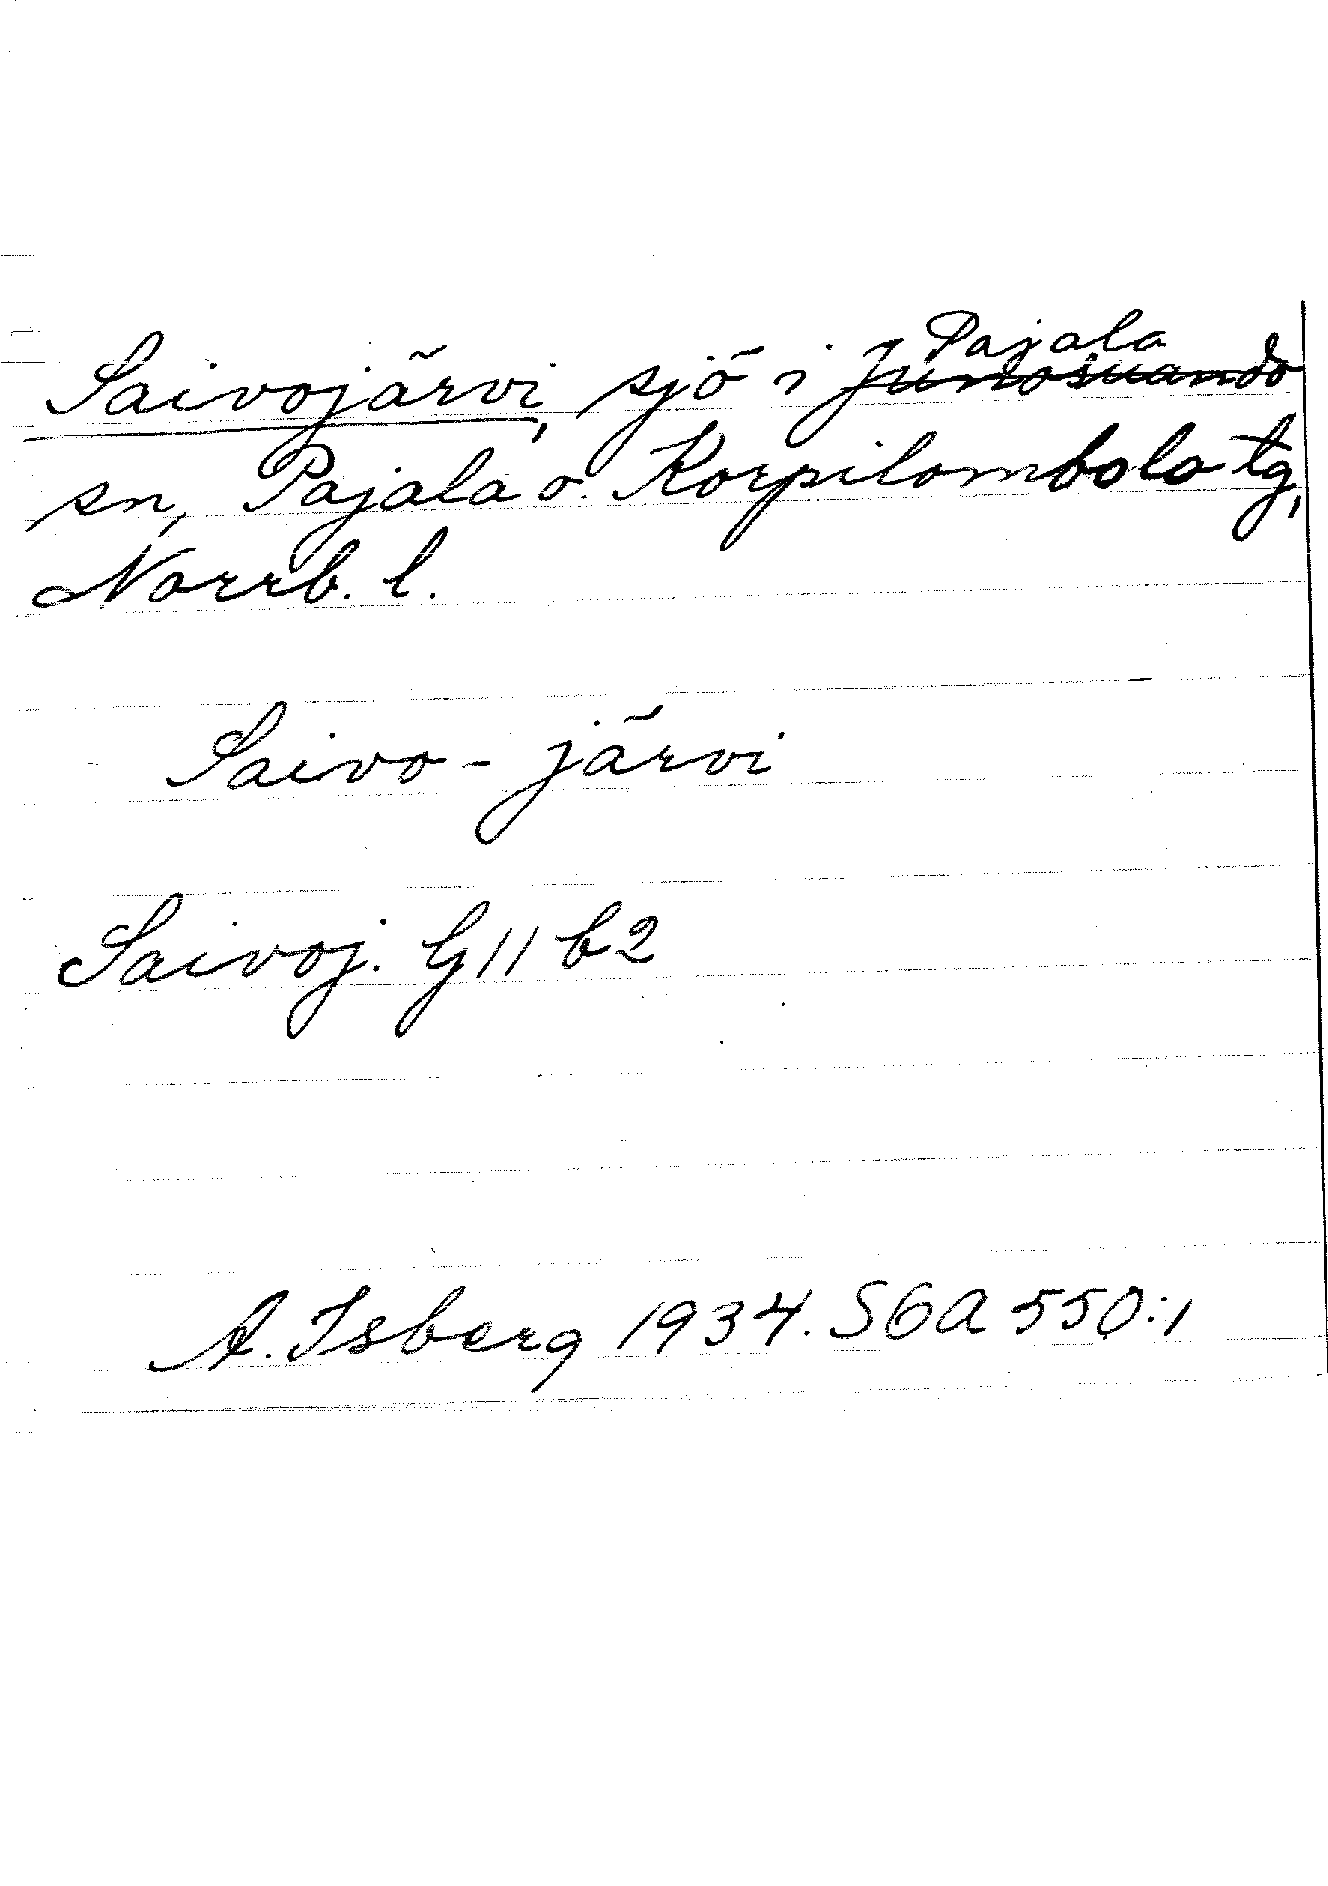 Saivojärvi, sjö i Junosuando Pajala
sn, Pajala o. Korpilombolo tg,
Norrb. l.
Saivo - järvi
Saivoj. G 11 b 2
A. Isberg 1934. SGA 550:1